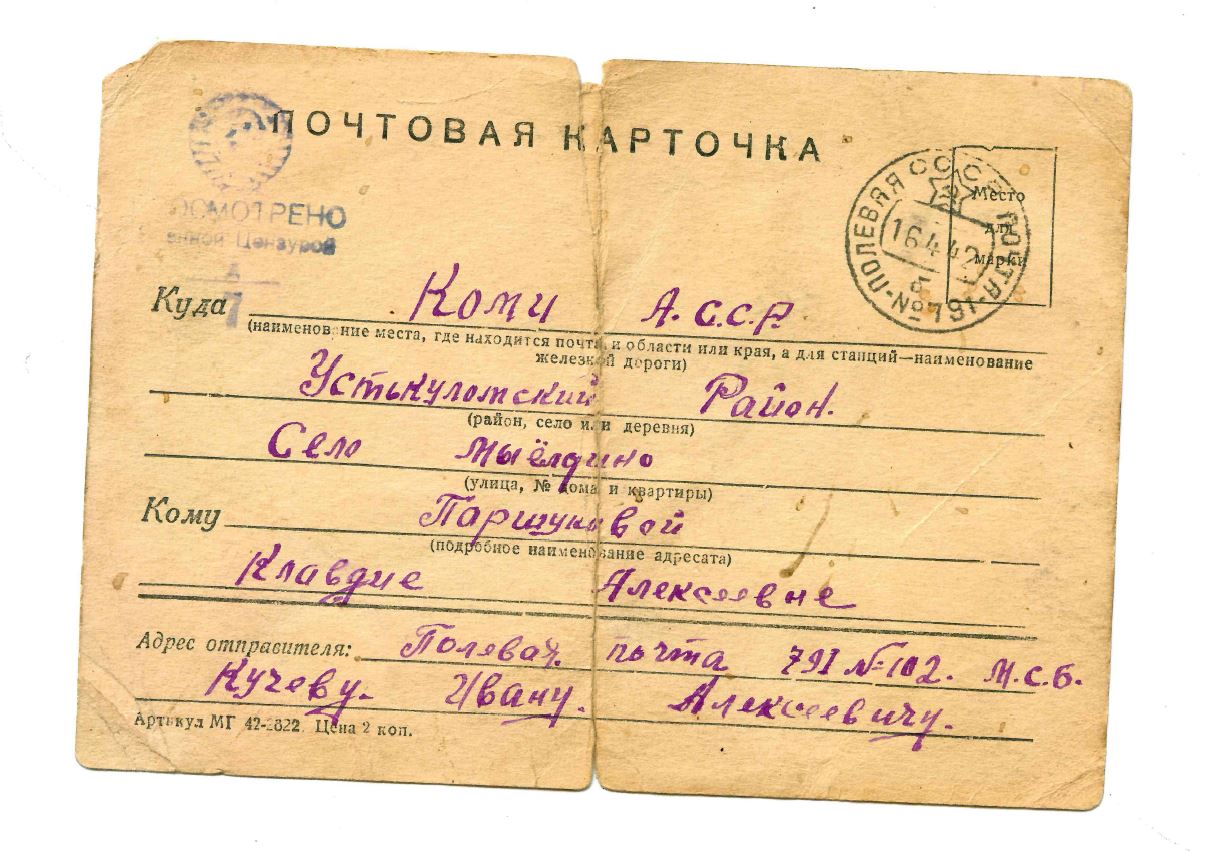 ПОЧТОВАЯ КАРТОЧКА
ОСМОТРЕНО
енной Цензурой
ПОЛЕВАЯ СССР ПОЧТА-
16 4 42
Место
для
марки
Куда Коми А.С.С.Р.
(наименование места, где находится почта, и области или края, а для станций—наименование
железной дороги)
Устькуломский Район.
(район, село или деревня)
Село Мыёлдино
(улица, № дома и квартиры)
Кому Паршуковой
(подробное наименование адресата)
Клавдие Алексеевне
Адрес отправителя: Полевая. почта 791 №102. М.С.Б.
Кучеву. Ивану. Алексеевичу.
Артикул МГ Цена 2 коп.